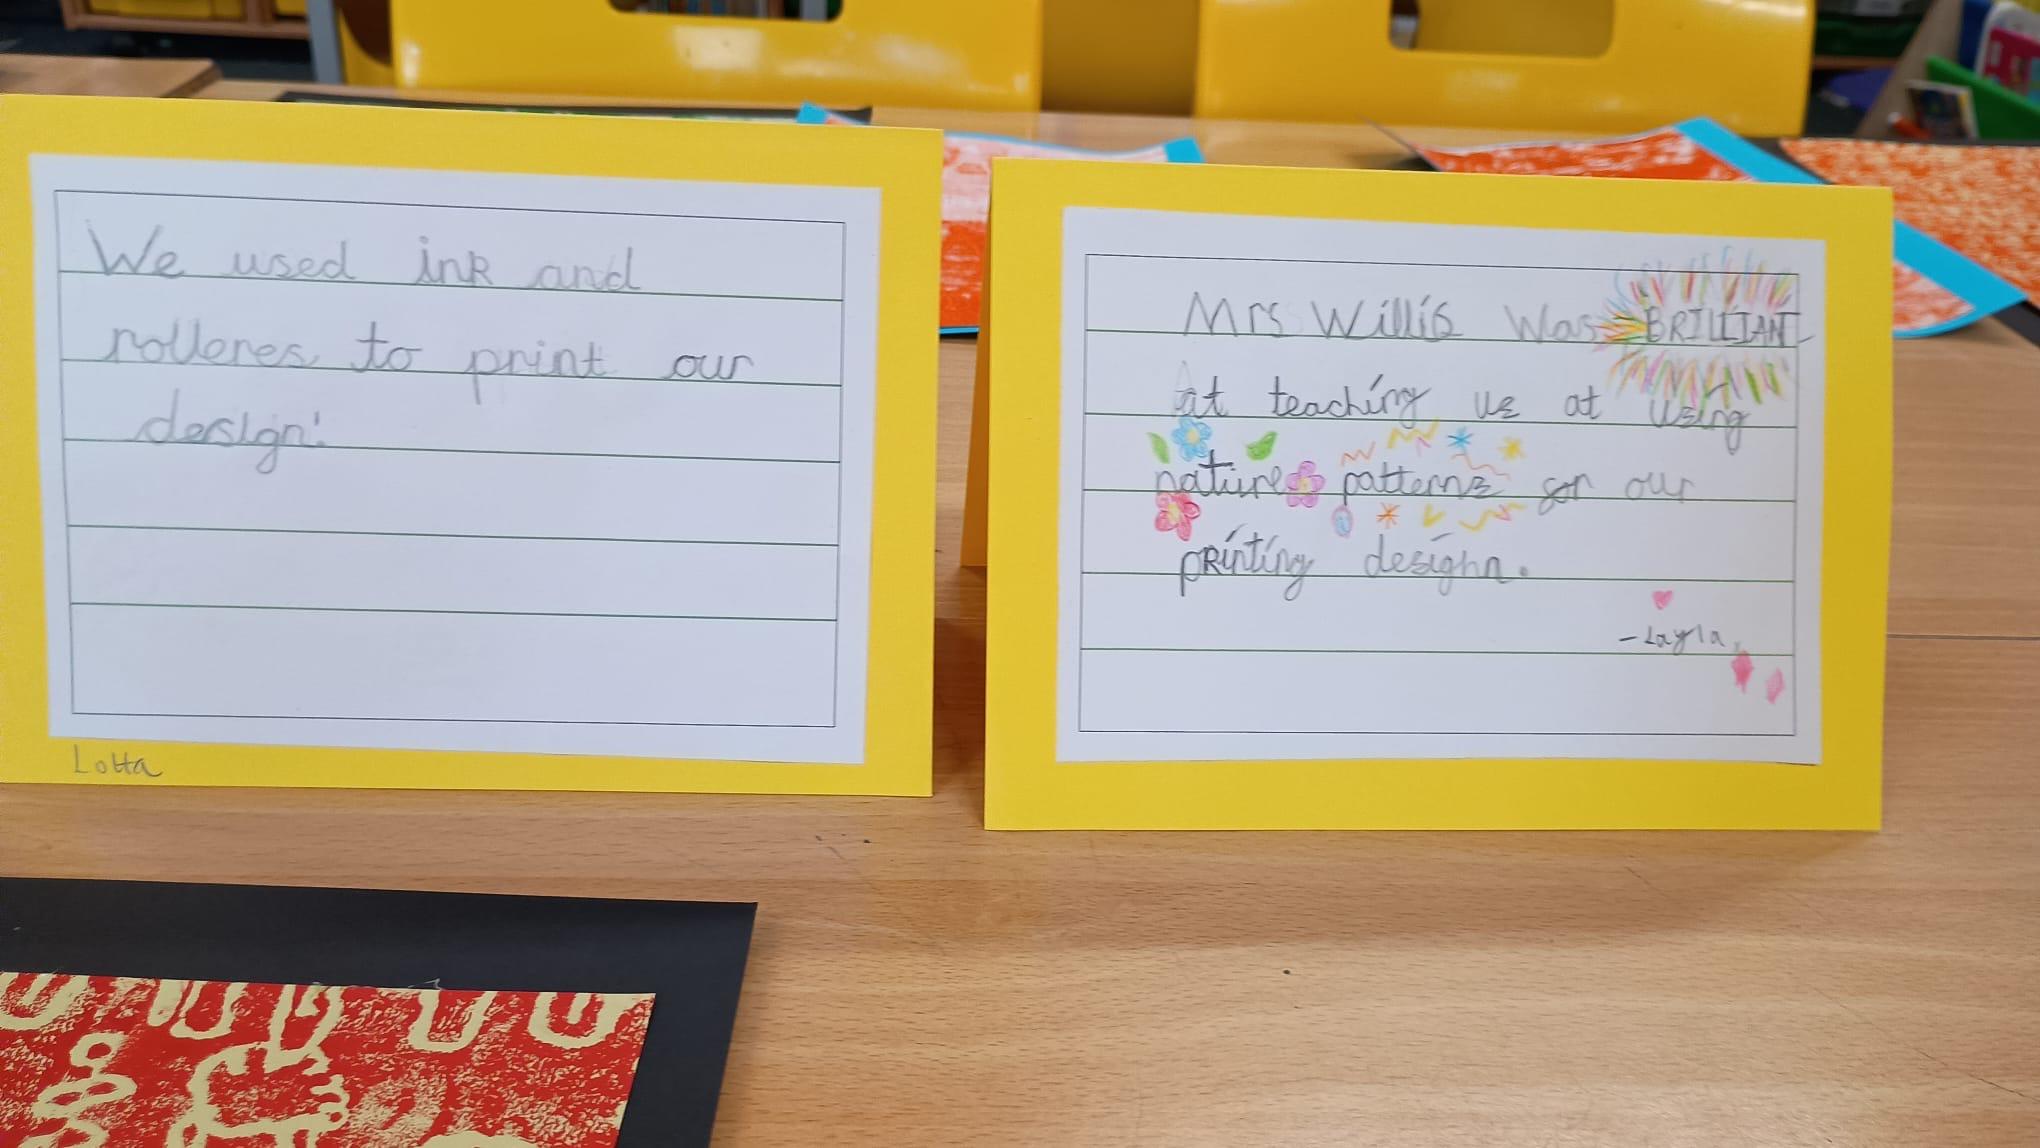 We used ink and
rolleres to print our
design!
Lotta
Mrs Willis was BRILLIANT
at teaching us at using
nature patterns for our
printing desighn.
-Layla